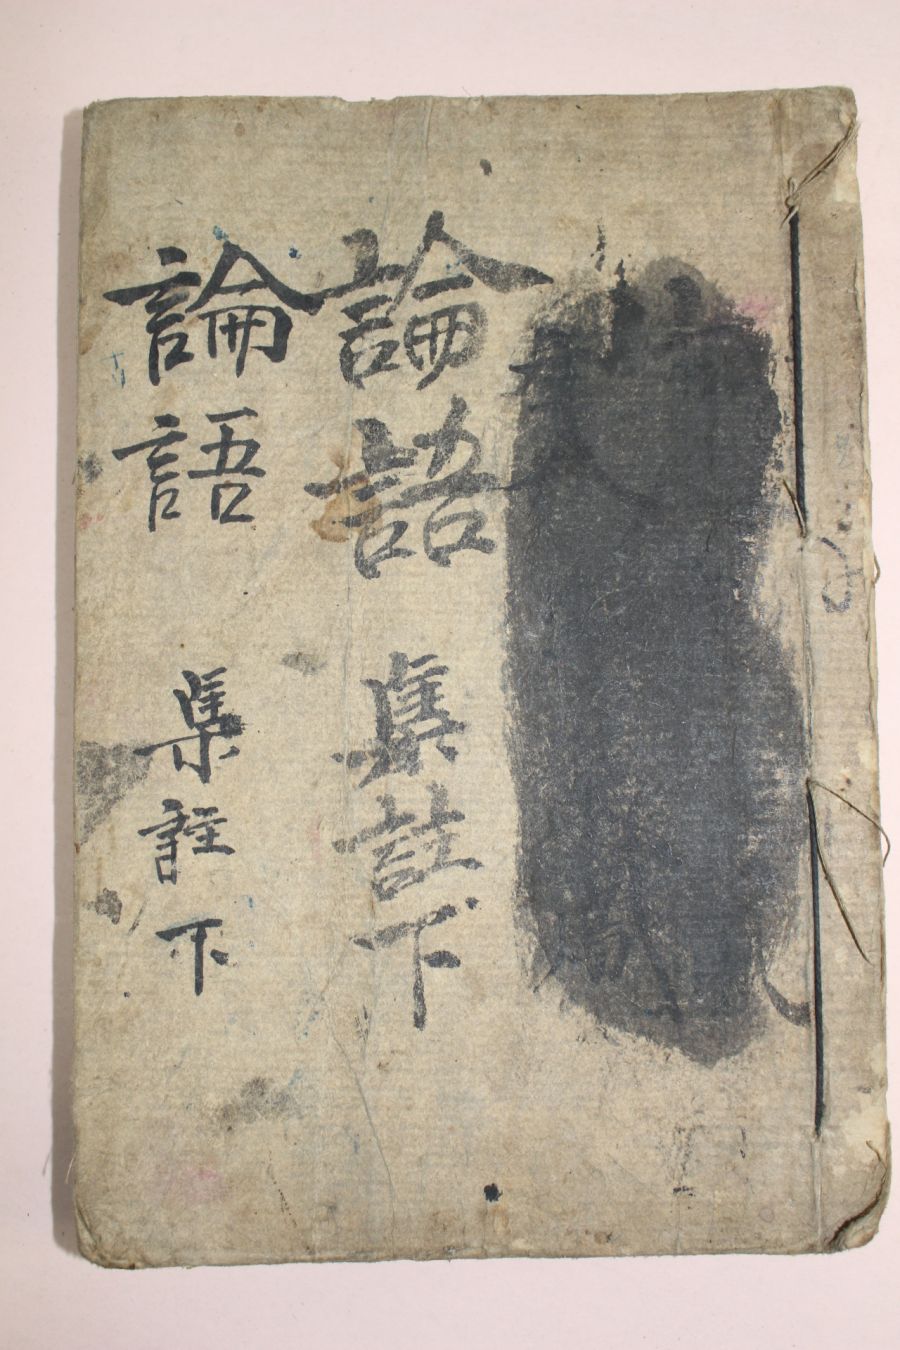 論語 集註 下
論語 集註 下